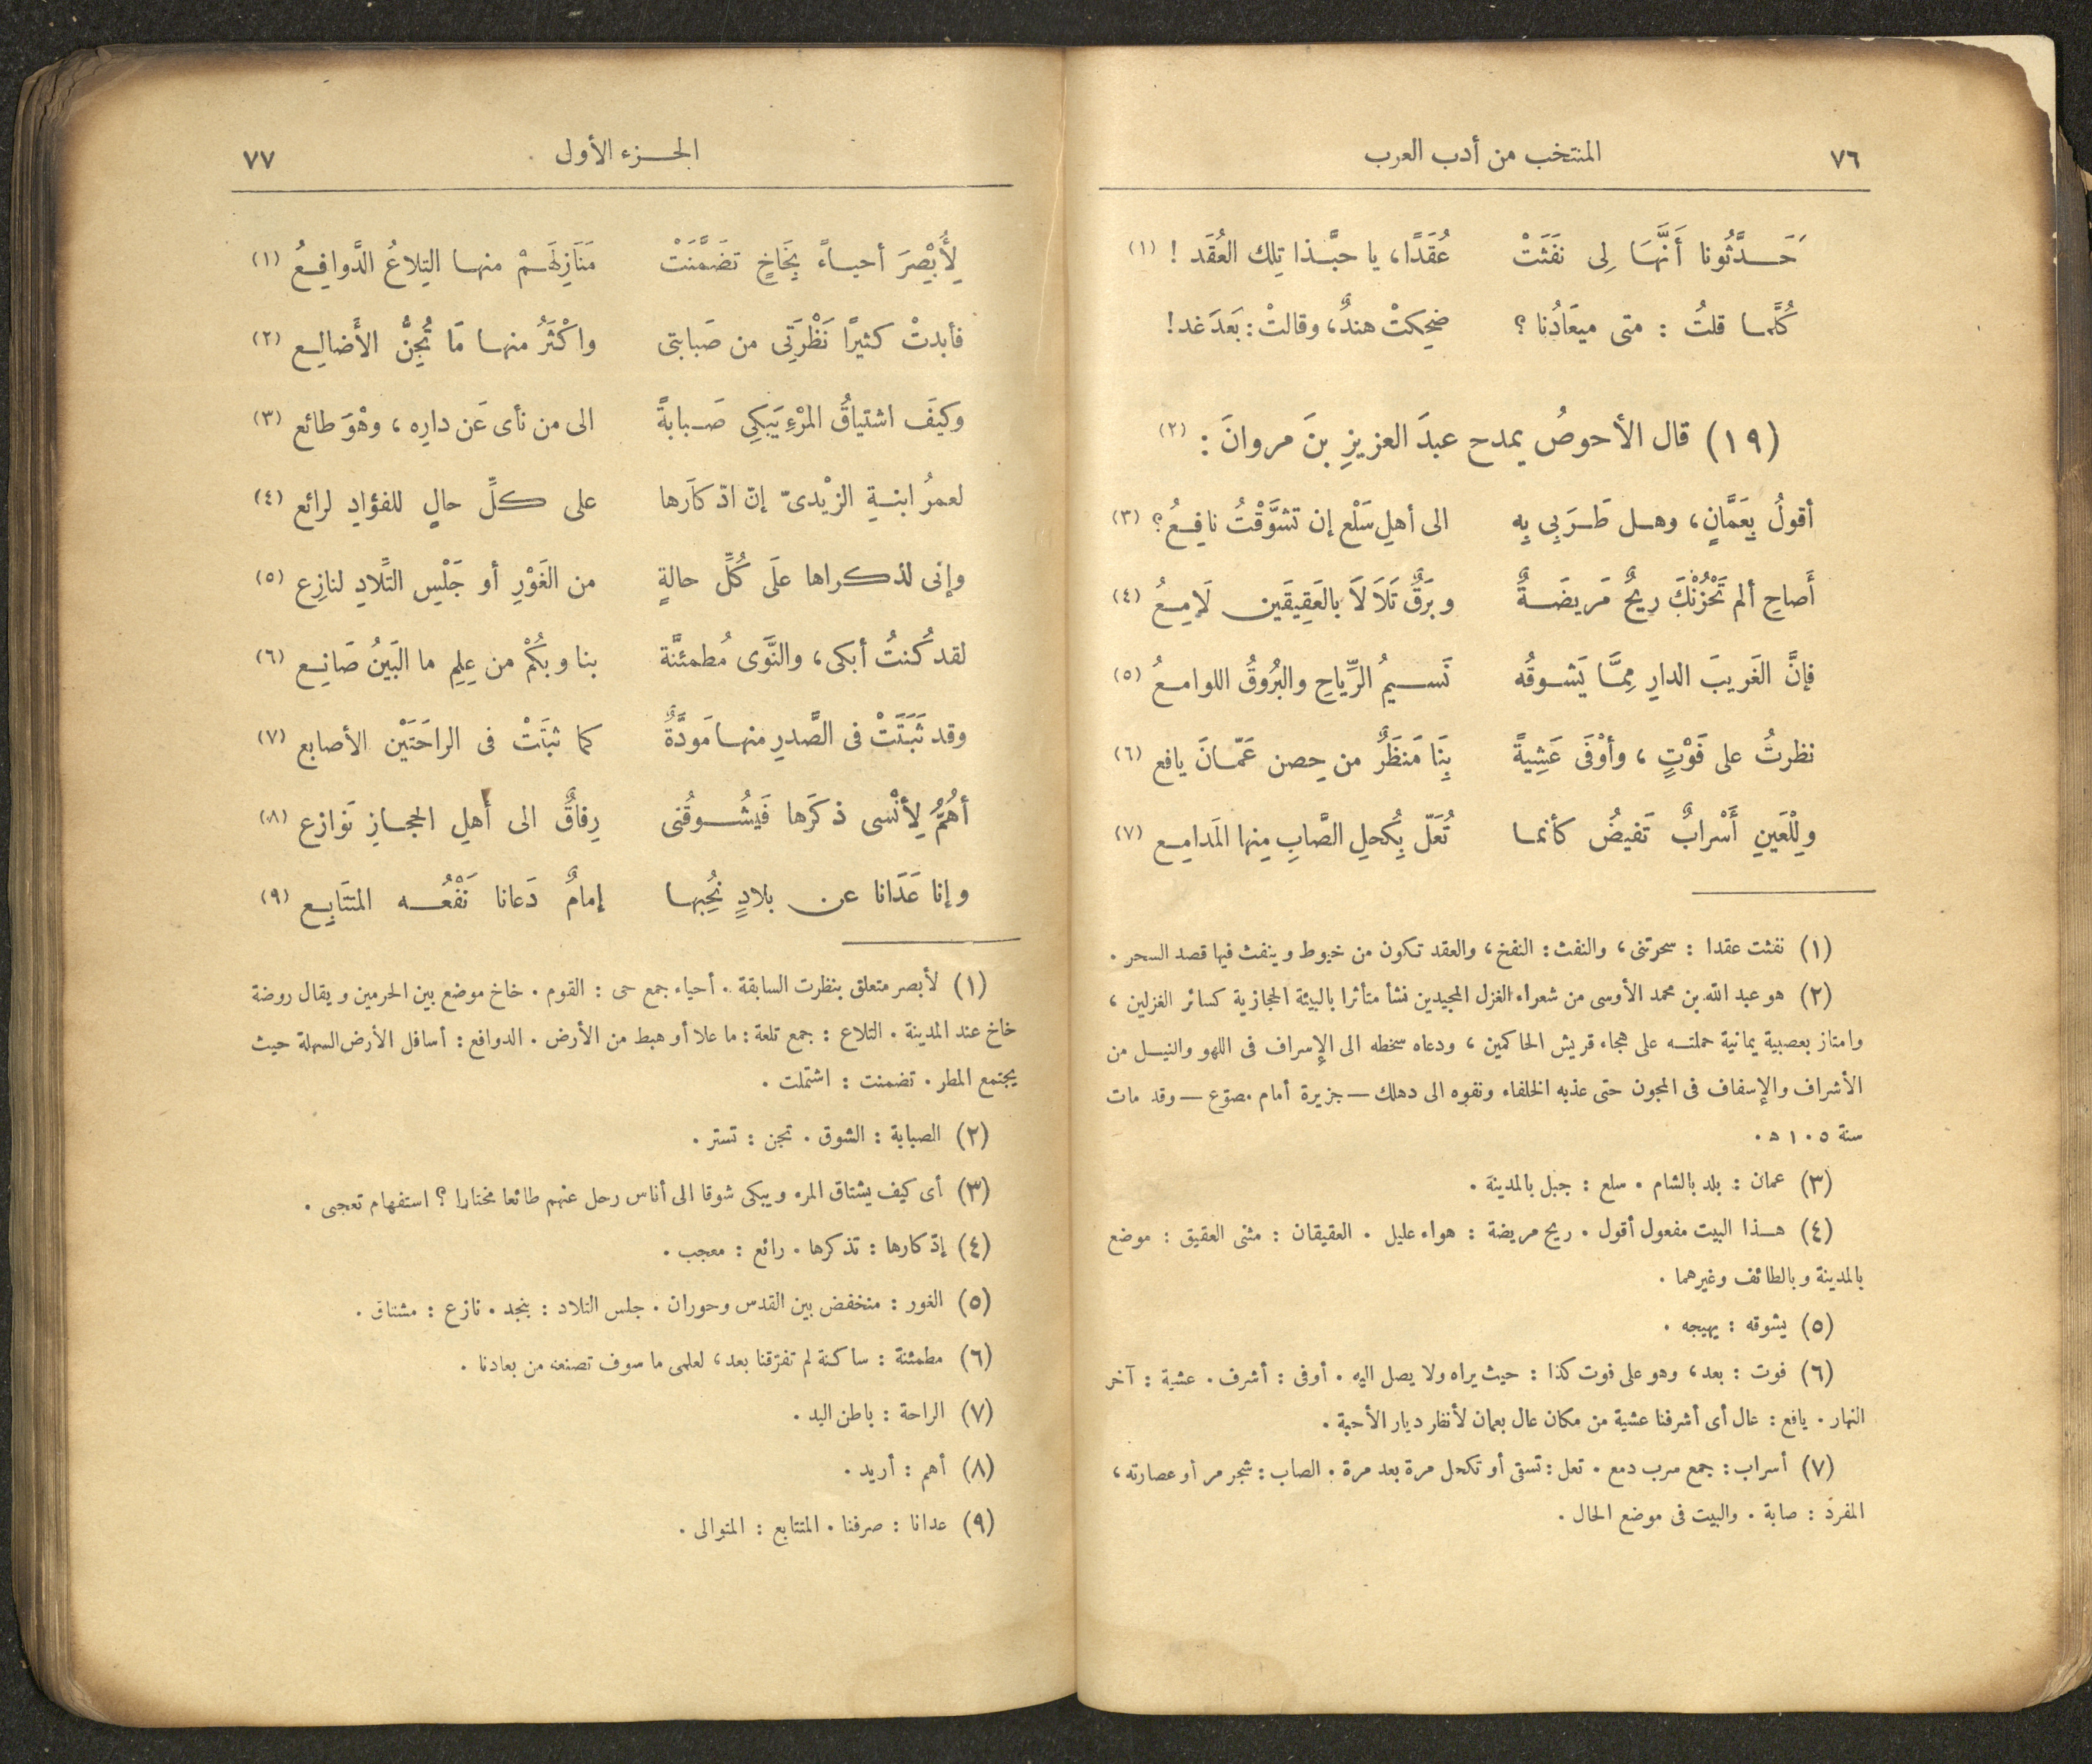 ٧٦ المنتخب من أدب العرب
حَـدَّثُونا أَنَّهَا لِى نفَثَتْ عُقَدًا، يا حبَّذا تِلك العُقَد ! (١)
كُلَّمـا قلتُ : متى ميعَادُنا ؟ ضحِكتْ هندٌ، وقالتْ: بَعدَ غد!
(١٩) قال الأحوصُ يمدح عبدَ العزيزِ بنَ مروانَ : (٢)
أقولُ بِعَمَّانٍ، وهـل طَـرَبِى بِه الى أهلِ سَلْع إن تشوَّقْتُ نافِعُ؟ (٣)
أَصاحِ ألم تَحْزُنْكَ رِيحٌ مَريضَـةٌ وبَرَقٌ تَلَالَا بالعَقِيقَين لَامِعُ (٤)
فإنَّ الغَريبَ الدارِ مِمَّـا يَشوقُه نَسيمُ الرِّياحِ والبُرُوقُ اللوامعُ (٥)
نظرتُ على فَوْتٍ ، وأوْفَى عَشِيةً بِنَا مَنظَرٌ من حِصن عَمّانَ يافع (٦)
ولِلْعَينِ أَسْرابٌ تَفيضُ كأنما تُعَلّ بِكُحلِ الصَّابِ مِنها المَدامِع (٧)
(١) نفثت عقدا : سحرتنى ، والنفث : النفخ ، والعقد تكون من خيوط وينفث فيها قصد السحر .
(٢) هو عبد الله بن محمد الأوسى من شعراء الغزل المجيدين نشأ متأثرا بالبيئة الحجازية كسائر الغزلين ،
وامتاز بعصبية يمانية حملتـه على هجاء قريش الحاكمين ، ودعاه سخطه الى الإسراف فى اللهو والنيـل من
الأشراف والإسفاف فى المجون حتى عذبه الخلفاء ونفوه الى دهلك — جزيرة أمام مصوّع — وقد مات
سنة ١٠٥ ه .
(٣) عمان : بلد بالشام . سلع : جبل بالمدينة .
(٤) هـذا البيت مفعول أقول . ريح مريضة : هواء عليل . العقيقان : مثنى العقيق : موضع
بالمدينة وبالطائف وغيرهما .
(٥) يشوقه : يهيجه .
(٦) فوت : بعد ، وهو على فوت كذا : حيث يراه ولا يصل اليه . أوفى : أشرف . عشية : آخر
النهار . يافع : عال أى أشرفنا عشية من مكان عال بعمان لأنظر ديار الأحبة .
(٧) أسراب : جمع سرب دمع . تعل : تسقى أو تكحل مرة بعد مرة . الصاب : شجر مر أو عصارته ،
المفرد : صابة . والبيت فى موضع الحال .
الجـزء الأول ٧٧
لِأُبْصِرَ أحيـاءً بِخَاخٍ تضَمَّنَتْ مَنَازِلَهَـمْ منهـا التِلاعُ الدَّوافِعُ (١)
فأبدتْ كثيرًا نَظْرَتِى من صَبابتى واكْثَرُ منهـا مَا تُجِنُّ الأَضالِع (٢)
وكيفَ اشتياقُ المرْءِ يَبكِى صَـبابةً الى من نأى عَن دارِه ، وهْوَ طائع (٣)
لعمرُ ابنـةِ الزيْدىّ إنّ ادّكارَها على كلِّ حالٍ للفؤادِ لرائع (٤)
وإنى لذكراها علَى كُلِّ حالةٍ من الغَوْرِ أو جَلْسِ التِّلادِ لنازِع (٥)
لقد كُنتُ أبكى، والنَّوَى مُطمئنَّة بنا وبكُمْ من عِلمِ ما البَينُ صَانِع (٦)
وقد ثَبَتَتْ فى الصَّدرِ منهـا مَودَّةٌ كما ثبتَتْ فى الراحَتَيْن الأصابع (٧)
أهُمُّ لِأنْسى ذكَرَها فَيشُـوقُنى رِفاقٌ الى أهلِ الحجازِ نَوازع (٨)
وإنا عَدَانا عن بلادٍ نُحِبها إمامٌ دَعانا نَفْعُـه المتتَابِع (٩)
(١) لأبصر متعلق بنظرت السابقة . أحياء جمع حى : القوم . خاخ موضع بين الحرمين ويقال روضة
خاخ عند المدينة . التلاع : جمع تلعة : ما علا أو هبط من الأرض . الدوافع : أسافل الأرض السهلة حيث
يجتمع المطر . تضمنت : اشتملت .
(٢) الصبابة : الشوق . تجن : تستر .
(٣) أى كيف يشتاق المرء ويبكى شوقا الى أناس رحل عنهم طائعا مختارا ؟ استفهام تعجبى .
(٤) إدّكارها : تذكرها . رائع : معجب .
(٥) الغور : منخفض بين القدس وحوران . جلس التلاد : بنجد . نازع : مشتاق .
(٦) مطمئنة : ساكنة لم تفرّقنا بعد ، لعلمى ما سوف تصنعه من بعادنا .
(٧) الراحة : باطن اليد .
(٨) أهم : أريد .
(٩) عدانا : صرفنا . المتتابع : المتوالى .